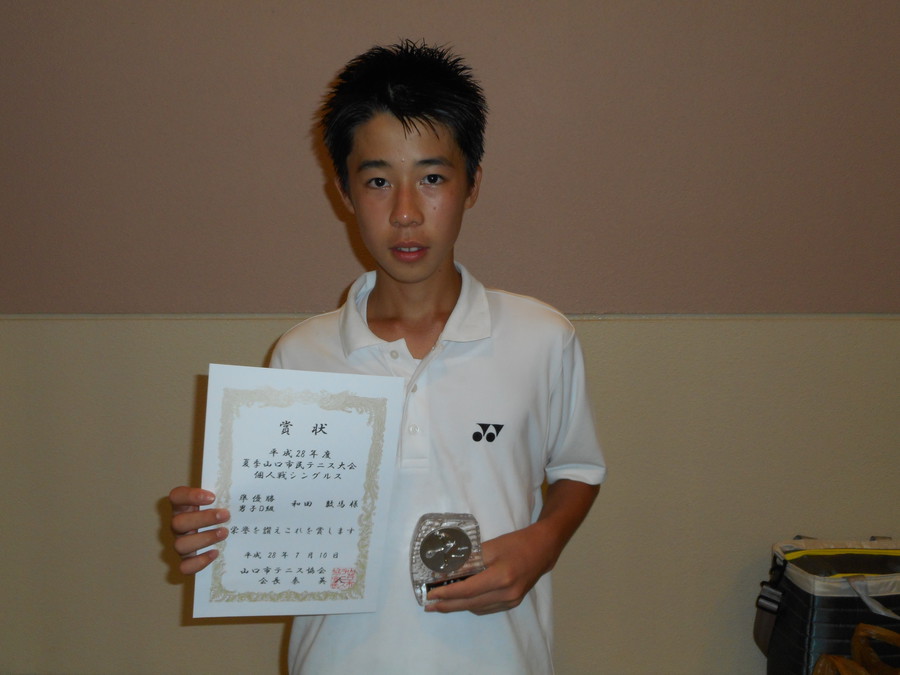 賞状
平成28年度
夏季山口市民テニス大会
個人戦シングルス
準優勝
男子D級 和田 数馬様
栄誉を讃えこれを賞します
平成28年7月10日
山口市テニス協会
会長 秦 英